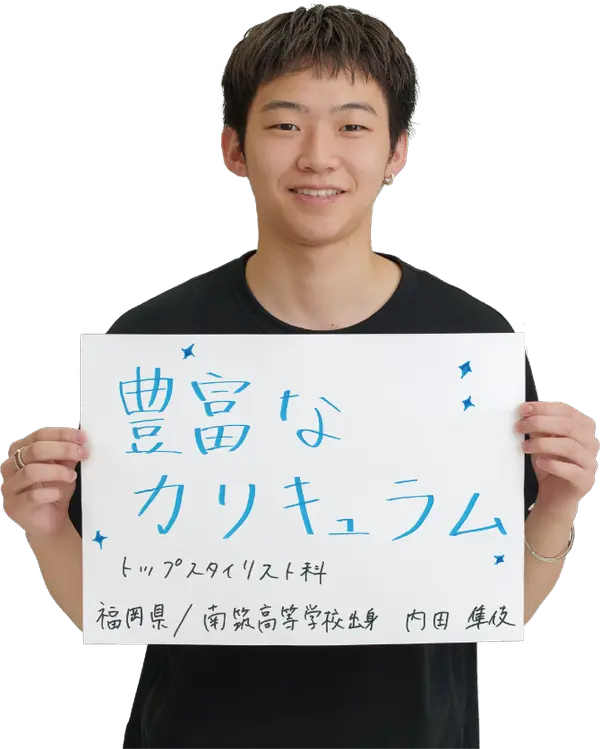 豊富な
カリキュラム
トップスタイリスト科
福岡県/南筑高等学校出身 内田 隼伎